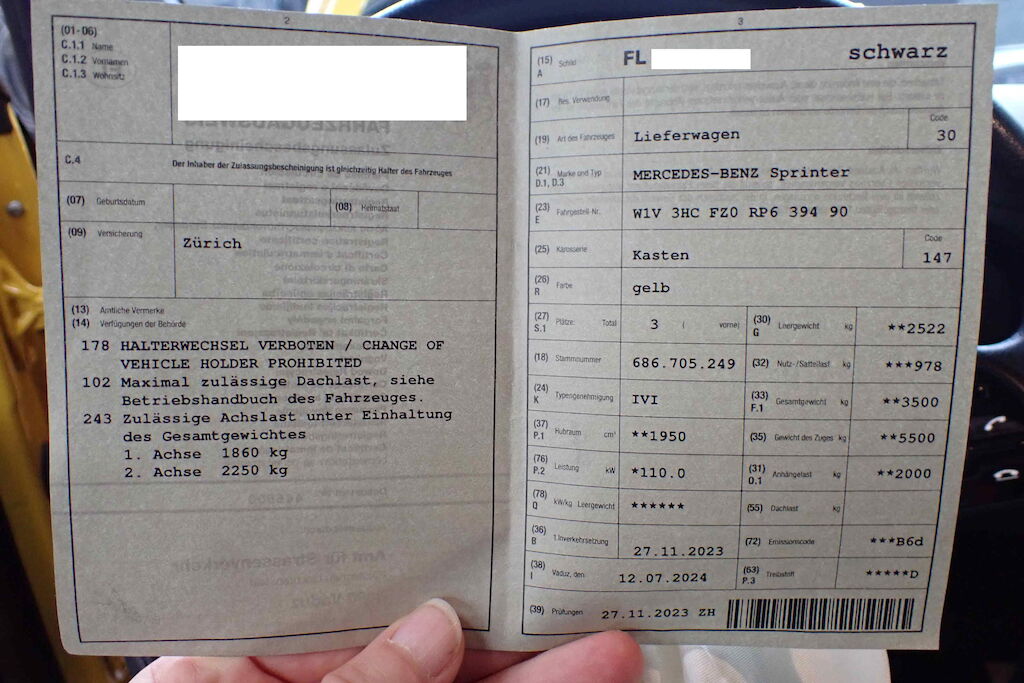 2
(01-06)
C.1.1 Name
C.1.2 Vornamen
C.1.3 Wohnsitz
C.4 Der Inhaber der Zulassungsbescheinigung ist gleichzeitig Halter des Fahrzeuges
(07) Geburtsdatum (08) Heimatstaat
(09) Versicherung Zürich
(13) Amtliche Vermerke
(14) Verfügungen der Behörde
178 HALTERWECHSEL VERBOTEN / CHANGE OF
VEHICLE HOLDER PROHIBITED
102 Maximal zulässige Dachlast, siehe
Betriebshandbuch des Fahrzeuges.
243 Zulässige Achslast unter Einhaltung
des Gesamtgewichtes
1. Achse 1860 kg
2. Achse 2250 kg
3
(15) A Schild FL schwarz
(17) Bes. Verwendung
(19) Art des Fahrzeuges Lieferwagen Code 30
(21) D.1, D.3 Marke und Typ MERCEDES-BENZ Sprinter
(23) E Fahrgestell-Nr. W1V 3HC FZ0 RP6 394 90
(25) Karosserie Kasten Code 147
(26) R Farbe gelb
(27) S.1 Plätze: Total 3 ( vorne) (30) G Leergewicht kg **2522
(18) Stammnummer 686.705.249 (32) Nutz-/Sattellast kg ***978
(24) K Typengenehmigung IVI (33) F.1 Gesamtgewicht kg **3500
(37) P.1 Hubraum cm³ **1950 (35) Gewicht des Zuges kg **5500
(76) P.2 Leistung kW *110.0 (31) O.1 Anhängelast kg **2000
(78) Q kW/kg Leergewicht ****** (55) Dachlast kg
(36) B 1.Inverkehrsetzung 27.11.2023 (72) Emissionscode ***B6d
(38) I Vaduz, den 12.07.2024 (63) P.3 Treibstoff *****D
(39) Prüfungen 27.11.2023 ZH